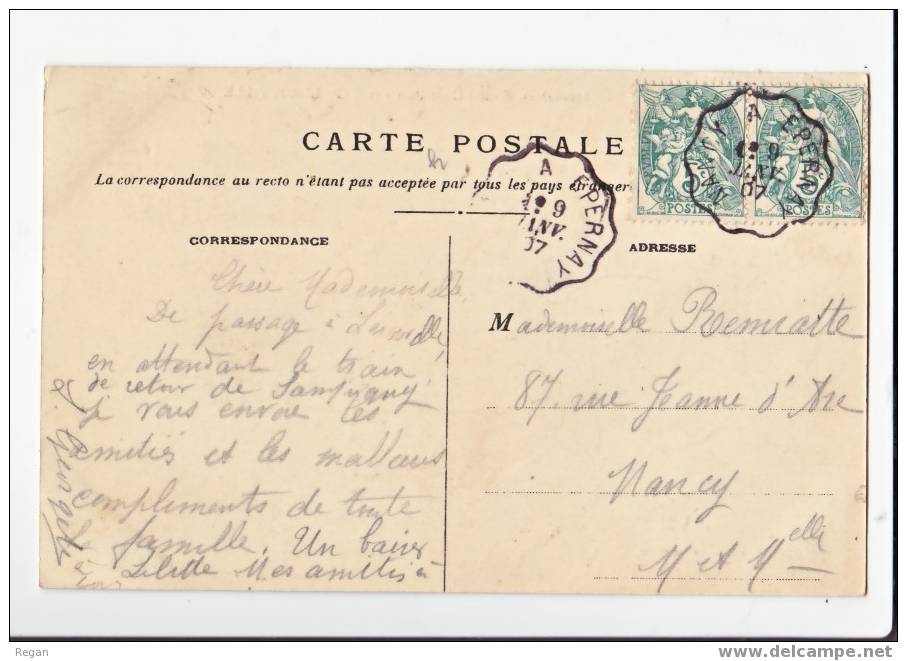 CARTE POSTALE
La correspondance au recto n'étant pas acceptée par tous les pays étrangers
CORRESPONDANCE
ADRESSE
NANCY A EPERNAY
9
JANV.
07
A EPERNAY
9
JANV.
07
POSTES
POSTES
Chère Mademoiselle
De passage à
en attendant le train
de retour de Sampigny
je vous envoie les
amitiés et les meilleurs
compliments de toute
la famille. Un baiser
Mes amitiés à
Mademoiselle Remiatte
87. rue Jeanne d'Arc
Nancy
M et Melle
Regan
www.delcampe.net